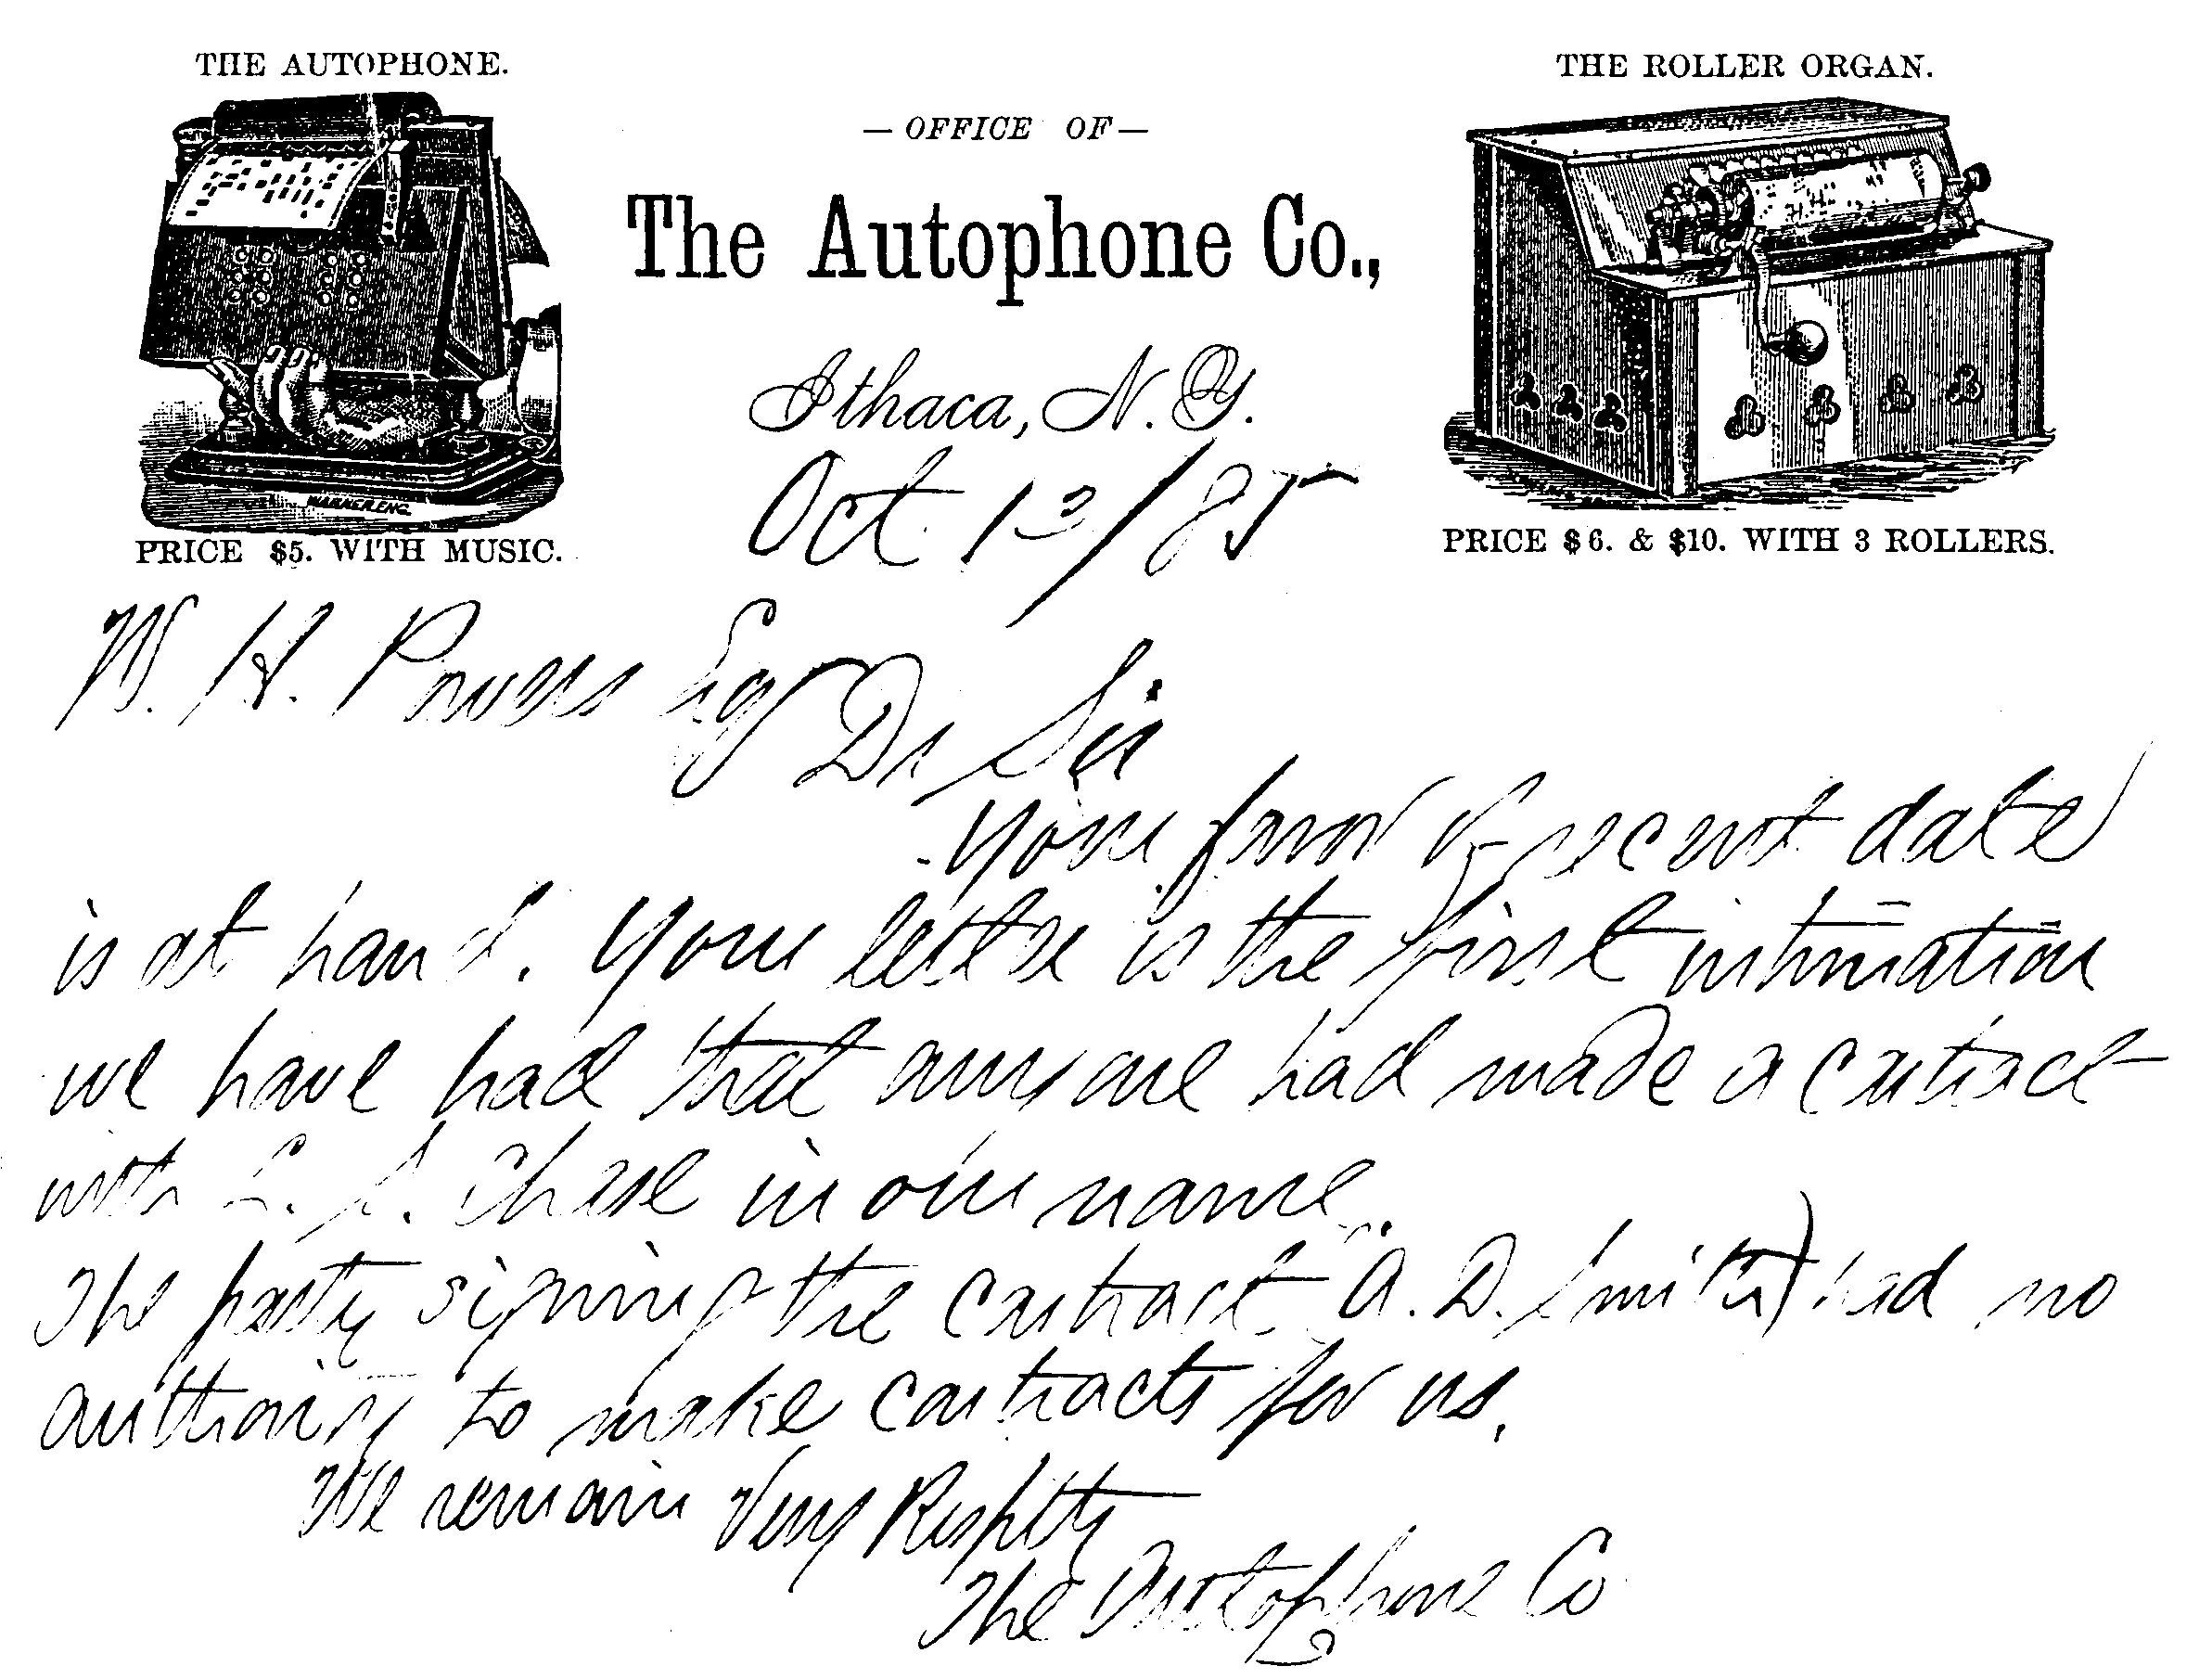 THE AUTOPHONE.
THE ROLLER ORGAN.
— OFFICE OF —
The Autophone Co.,
Ithaca, N.Y.
Oct 13/85
WARNER.ENG.
PRICE $5. WITH MUSIC.
PRICE $6. & $10. WITH 3 ROLLERS.
W. H. Powers Esq
Dr Sir
Your favor of recent date
is at hand. Your letter is the first intimation
we have had that any one had made a contract
with L. S. Chase in our name.
The party signing the contract A. D. Smith) had no
authority to make contracts for us.
We remain Very Respfty
The Autophone Co